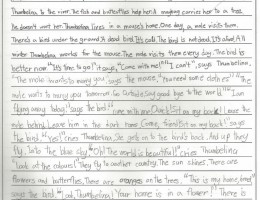 Thumbelina to the river. The fish and butterflies help her. A mayfly carries her to a tree.
He doesn't want her. Thumbelina lives in a mouse's home. One day, a mole visits them.
There's a bird under the ground. A dead bird. It's cold. The bird is not dead. It's alive! All
winter Thumbelina works for the mouse. The mole visits them every day. The bird is
better now. "It's time to go!" it says, "Come with me!" "I can't", says Thumbelina.
"The mole wants to marry you" says the mouse. "You need some clothes"
mole wants to marry you tomorrow. Go outside. Say good bye to the world" "I am
flying away today!" says the bird. "Come with me! Quick! Sit on my back! Leave the
mole behind. Leave him in the dark home. Come, friend! Sit on my back!" says
the bird. "Yes!" cries Thumbelina. She gets on to the bird's back. And up they
fly into the blue sky. "Oh! The world is beautiful!" cries Thumbelina
"Look at the colours!" They fly to another country. The sun shines. There are
flowers and butterflies. There are oranges on the trees. "This is my home, friend"
says the bird. "Look, Thumbelina! Your home is in a flower!" There is